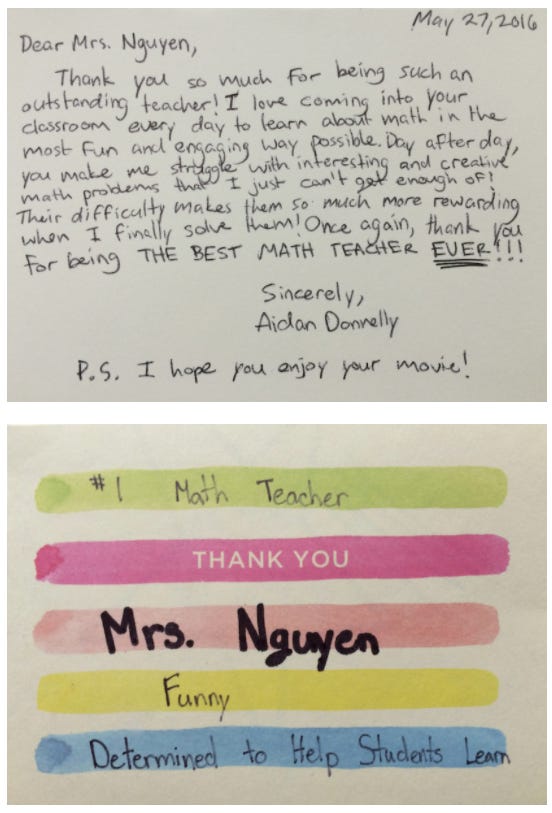 May 27, 2016
Dear Mrs. Nguyen,
Thank you so much for being such an
outstanding teacher! I love coming into your
classroom every day to learn about math in the
most fun and engaging way possible. Day after day,
you make me struggle with interesting and creative
math problems that I just can't get enough of!
Their difficulty makes them so much more rewarding
when I finally solve them! Once again, thank you
for being THE BEST MATH TEACHER EVER!!!
Sincerely,
Aidan Donnelly
P.S. I hope you enjoy your movie!
#1 Math Teacher
THANK YOU
Mrs. Nguyen
Funny
Determined to Help Students Learn